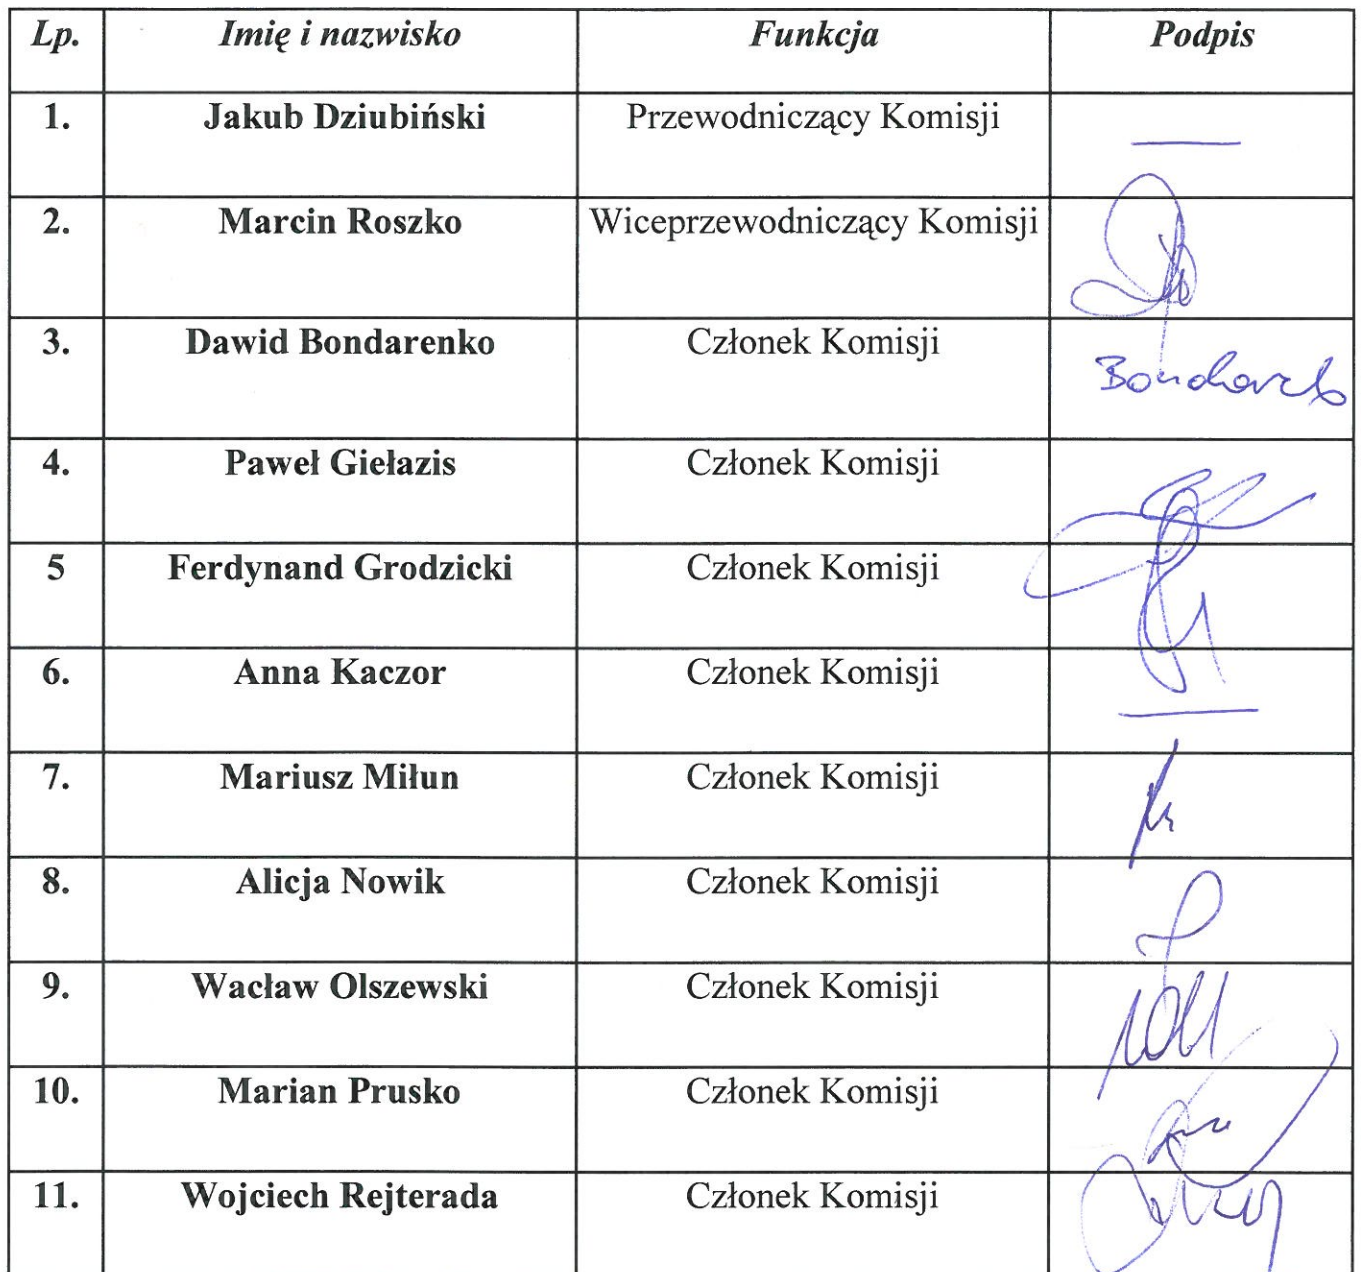 Lp. Imię i nazwisko Funkcja Podpis
1. Jakub Dziubiński Przewodniczący Komisji
2. Marcin Roszko Wiceprzewodniczący Komisji
3. Dawid Bondarenko Członek Komisji
4. Paweł Giełazis Członek Komisji
5 Ferdynand Grodzicki Członek Komisji
6. Anna Kaczor Członek Komisji
7. Mariusz Miłun Członek Komisji
8. Alicja Nowik Członek Komisji
9. Wacław Olszewski Członek Komisji
10. Marian Prusko Członek Komisji
11. Wojciech Rejterada Członek Komisji